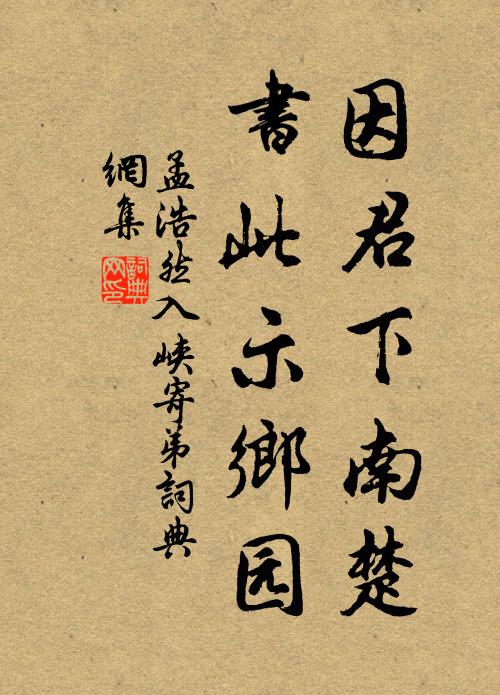 因君下南楚
書此示鄉园
孟浩然入峡寄弟詞典
網集
詞典網印